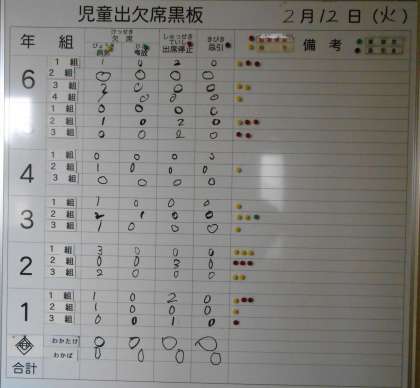 児童出欠席黒板 2月12日(火)
年 組 けっせき 欠席 びょうき 病気 じこ 事故 しゅっせき ていし 出席停止 きびき 忌引 備考
6 1組 1 0 2 0
2組 0 0 0 0
3組 2 0 0 0
4組 1 0 0 0
1組 0 0 0 0
2組 1 0 2 0
3組 0 0 2 0
4 1組 0 0 0 0
2組 1 0 0 0
3組 0 0 0 0
3 1組 1 0 0 0
2組 2 1 0 0
3組 1 0 0 0
2 1組 3 0 0 0
2組 0 0 3 0
3組 2 0 0 0
1 1組 1 0 2 0
2組 1 0 0 0
3組 0 0 1 0
わかたけ 0 0 0 0
わかば 0 0 0 0
合計